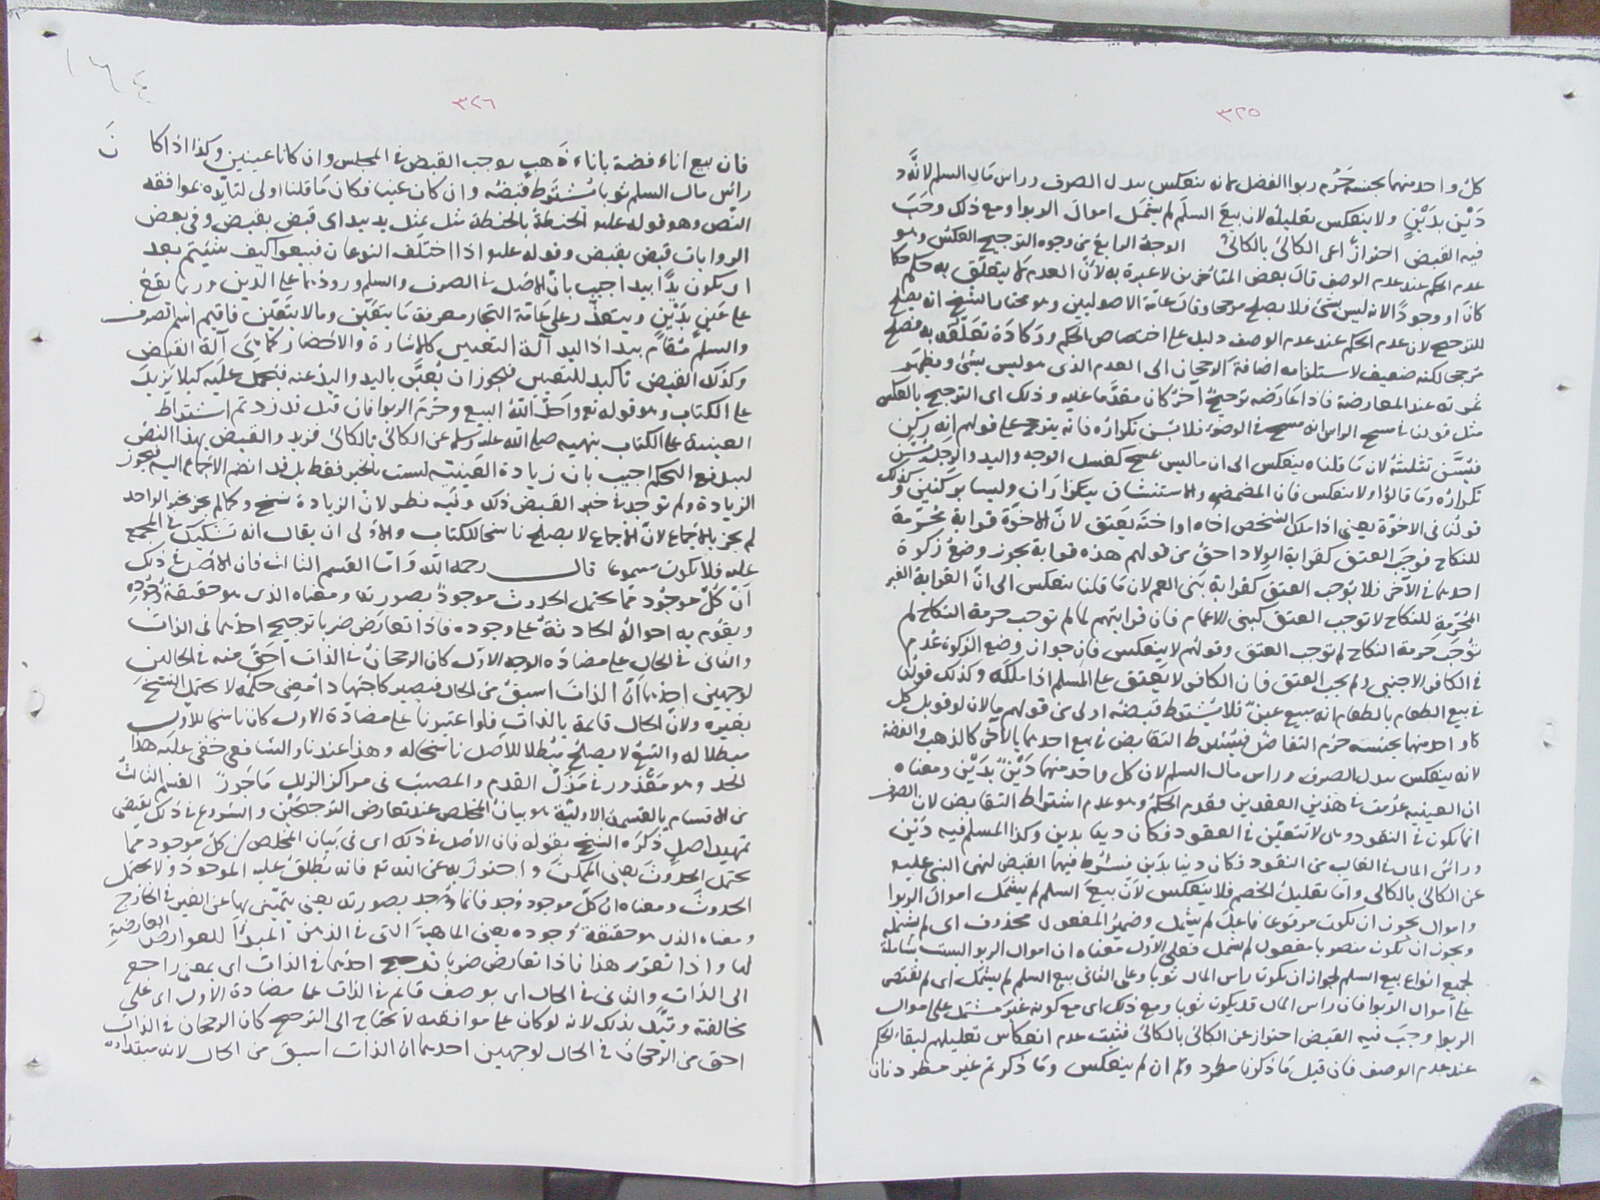 ٣٢٥
كل واحد منهما بجنسه حرم ربوا الفضل فانه ينعكس ببدل الصرف وراس مال السلم لانه
دين بدين ولا ينعكس تعليله لان بيع السلم لم يشمل اموال الربوا ومع ذلك وجب
فيه القبض احترازا عن الكالئ بالكالئ الوجه الرابع من وجوه الترجيح العكس وهو
عدم الحكم عند عدم الوصف قال بعض المتاخرين لا عبرة به لان العدم لا يتعلق به حكم
للترجيح لان عدم الحكم عند عدم الوصف دليل على اختصاص الحكم ووكادة تعلقه به فصلح
مرجحا لكنه ضعيف لاستلزامه اضافة الرجحان الى العدم الذي هو ليس بشئ ويظهر
ثمرته عند المعارضة فاذا عارضه ترجيح آخر كان مقدما عليه وذلك اى الترجيح بالعكس
مثل قولنا في مسح الراس انه مسح في الوضوء فلا يسن تكراره فانه يترجح على قولهم انه ركن
فيسن تثليثه لان ما قلناه ينعكس الى ان ما ليس بمسح كغسل الوجه واليد والرجل يسن
تكراره وما قالوا ولا ينعكس فان المضمضة والاستنشاق يتكرران وليسا بركنين وكذلك
قولنا في الاخوة يعني اذا ملك الشخص اخاه او اخته يعتق لان الاخوة قرابة محرمة
للنكاح فوجب العتق كقرابة الولاد احق من قولهم هذه قرابة يجوز وضع زكوة
احدهما في الآخر فلا يوجب العتق كقرابة بنى العم لان ما قلنا ينعكس الى ان القرابة الغير
المحرمة للنكاح لا توجب العتق كبنى الاعمام فان قرابتهم لما لم توجب حرمة النكاح لم
توجب العتق وقولهم لا ينعكس فان جواز وضع الزكوة عدم
في الكافر الاجنبي ولم يجب العتق فان الكافر لا يعتق على المسلم اذا ملكه وكذلك قولنا
في بيع الطعام بالطعام انه مبيع عين فلا يشترط قبضه اولى من قولهم مالان لو قوبل كل
واحد منهما بجنسه حرم التفاضل فيشترط التقابض في بيع احدهما بالآخر كالذهب والفضة
لانه ينعكس ببدل الصرف وراس مال السلم لان كل واحد منهما دين بدين ومعناه
ان العينية عدمت في هذين العقدين فعدم الحكم وهو عدم اشتراط التقابض لان الصرف
انما يكون في النقود وهى لا تتعين في العقود فكان دينا بدين وكذا المسلم فيه دين
وراس المال في الغالب من النقود فكان دينا بدين فيشترط فيهما القبض لنهى النبي عليه
عن الكالئ بالكالئ واما تعليل الخصم فلا ينعكس لان بيع السلم لم يشمل اموال الربوا
واموال يجوز ان يكون مرفوعا فاعل لم يشمل وضمير المفعول محذوف اى لم يشمله
ويجوز ان يكون منصوبا مفعول لم يشمل فعلى الاول معناه ان اموال الربوا ليست شاملة
لجميع انواع بيع السلم لجواز ان يكون راس المال ثوبا وعلى الثاني بيع السلم لم يشمل اى لم يقتض
على اموال الربوا فان راس المال قد يكون ثوبا ومع ذلك اى مع كونه غير مشتمل على اموال
الربوا وجب فيه القبض احترازا عن الكالئ بالكالئ فثبت عدم انعكاس تعليلهم لبقاء الحكم
عند عدم الوصف فان قيل ما ذكرنا مطرد وان لم ينعكس وما ذكرتم غير مطرد
٣٢٦
فان بيع اناء فضة باناء ذهب يوجب القبض في المجلس وان كانا عينين وكذا اذا كان
راس مال السلم ثوبا يشترط قبضه وان كان عينا فكان ما قلنا اولى لتايده بموافقة
النص وهو قوله عليه الحنطة بالحنطة مثل بمثل يد بيد اى قبض بقبض وفي بعض
الروايات قبض بقبض وقوله عليه اذا اختلف النوعان فبيعوا كيف شئتم بعد
ان يكون يدا بيد اجيب بان الاصل في الصرف والسلم ورودهما على الدين وربما يقع
على عين بدين ويتعذر على عامة التجار معرفة ما يتعين وما لا يتعين فاقيم اسم الصرف
والسلم مقام بيد اذ اليد آلة التعيين كالاشارة والاحضار كما هى آلة القبض
وكذلك القبض تاكيد للتعيين فيجوز ان يعبر باليد واليد عنه فيحمل عليه كيلا يزيد
على الكتاب وهو قوله تع واحل الله البيع وحرم الربوا فان قيل قد زدتم اشتراط
العينية على الكتاب بنهيه صلى الله عليه وسلم عن الكالئ بالكالئ فزيد والقبض بهذا النص
ليندفع التحكم اجيب بان زيادة العينية ليست بالخبر فقط بل قد انضم الاجماع اليه فيجوز
الزيادة ولم توجد في خبر القبض ذلك وفيه نظر لان الزيادة نسخ وكما لم يجز بخبر الواحد
لم يجز بالاجماع لان الاجماع لا يصلح ناسخا للكتاب والاولى ان يقال انه تشكيك في المجمع
عليه فلا يكون مسموعا قال رحمه الله واما القسم الثالث فان الاصل في ذلك
ان كل موجود مما يحتمل الحدوث موجود بصورته ومعناه الذي هو حقيقة وجوده
ويقوم به احواله الحادثة على وجوده فاذا تعارض ضربا ترجيح احدهما في الذات
والثاني في الحال على مضادة الوجه الاول كان الرجحان في الذات احق منه في الحال
لوجهين احدهما ان الذات اسبق من الحال فيصير كاجتهاد امضى حكمه لا يحتمل النسخ
بغيره ولان الحال قائمة بالذات فلو اعتبرنا على مضادة الاول كان ناسخا للاول
مبطلا له والتبع لا يصلح مبطلا للاصل ناسخا له وهذا عندنا والشافعي خفى عليه هذا
الحد وهو معذور في مزل القدم والمصيب في مراكز الزلل ماجور القسم الثالث
من الاقسام بالقسمة الاولية هو بيان المخلص عند تعارض الترجيحين والشروع في ذلك يقتضي
تمهيد اصل ذكره الشيخ بقوله فان الاصل في ذلك اى في بيان المخلص ان كل موجود مما
يحتمل الحدوث يعني الممكن واحترز به عن الله تع فانه يطلق عليه الموجود ولا يحتمل
الحدوث ومعناه ان كل موجود وجد فانما وجد بصورته يعني يتميز بها عن الغير في الخارج
ومعناه الذي هو حقيقة وجوده يعني الماهية التي في الذهن المبدأ للعوارض العارضة
لها واذا تقرر هذا فاذا تعارض ضربا ترجيح احدهما في الذات اى بمعنى راجع
الى الذات والثاني في الحال اى بوصف قائم في الذات على مضادة الاول اى على
مخالفته وقيد بذلك لانه لو كان على موافقته لا يحتاج الى الترجيح كان الرجحان في الذات
احق من الرجحان في الحال لوجهين احدهما ان الذات اسبق من الحال لانه مبتداه